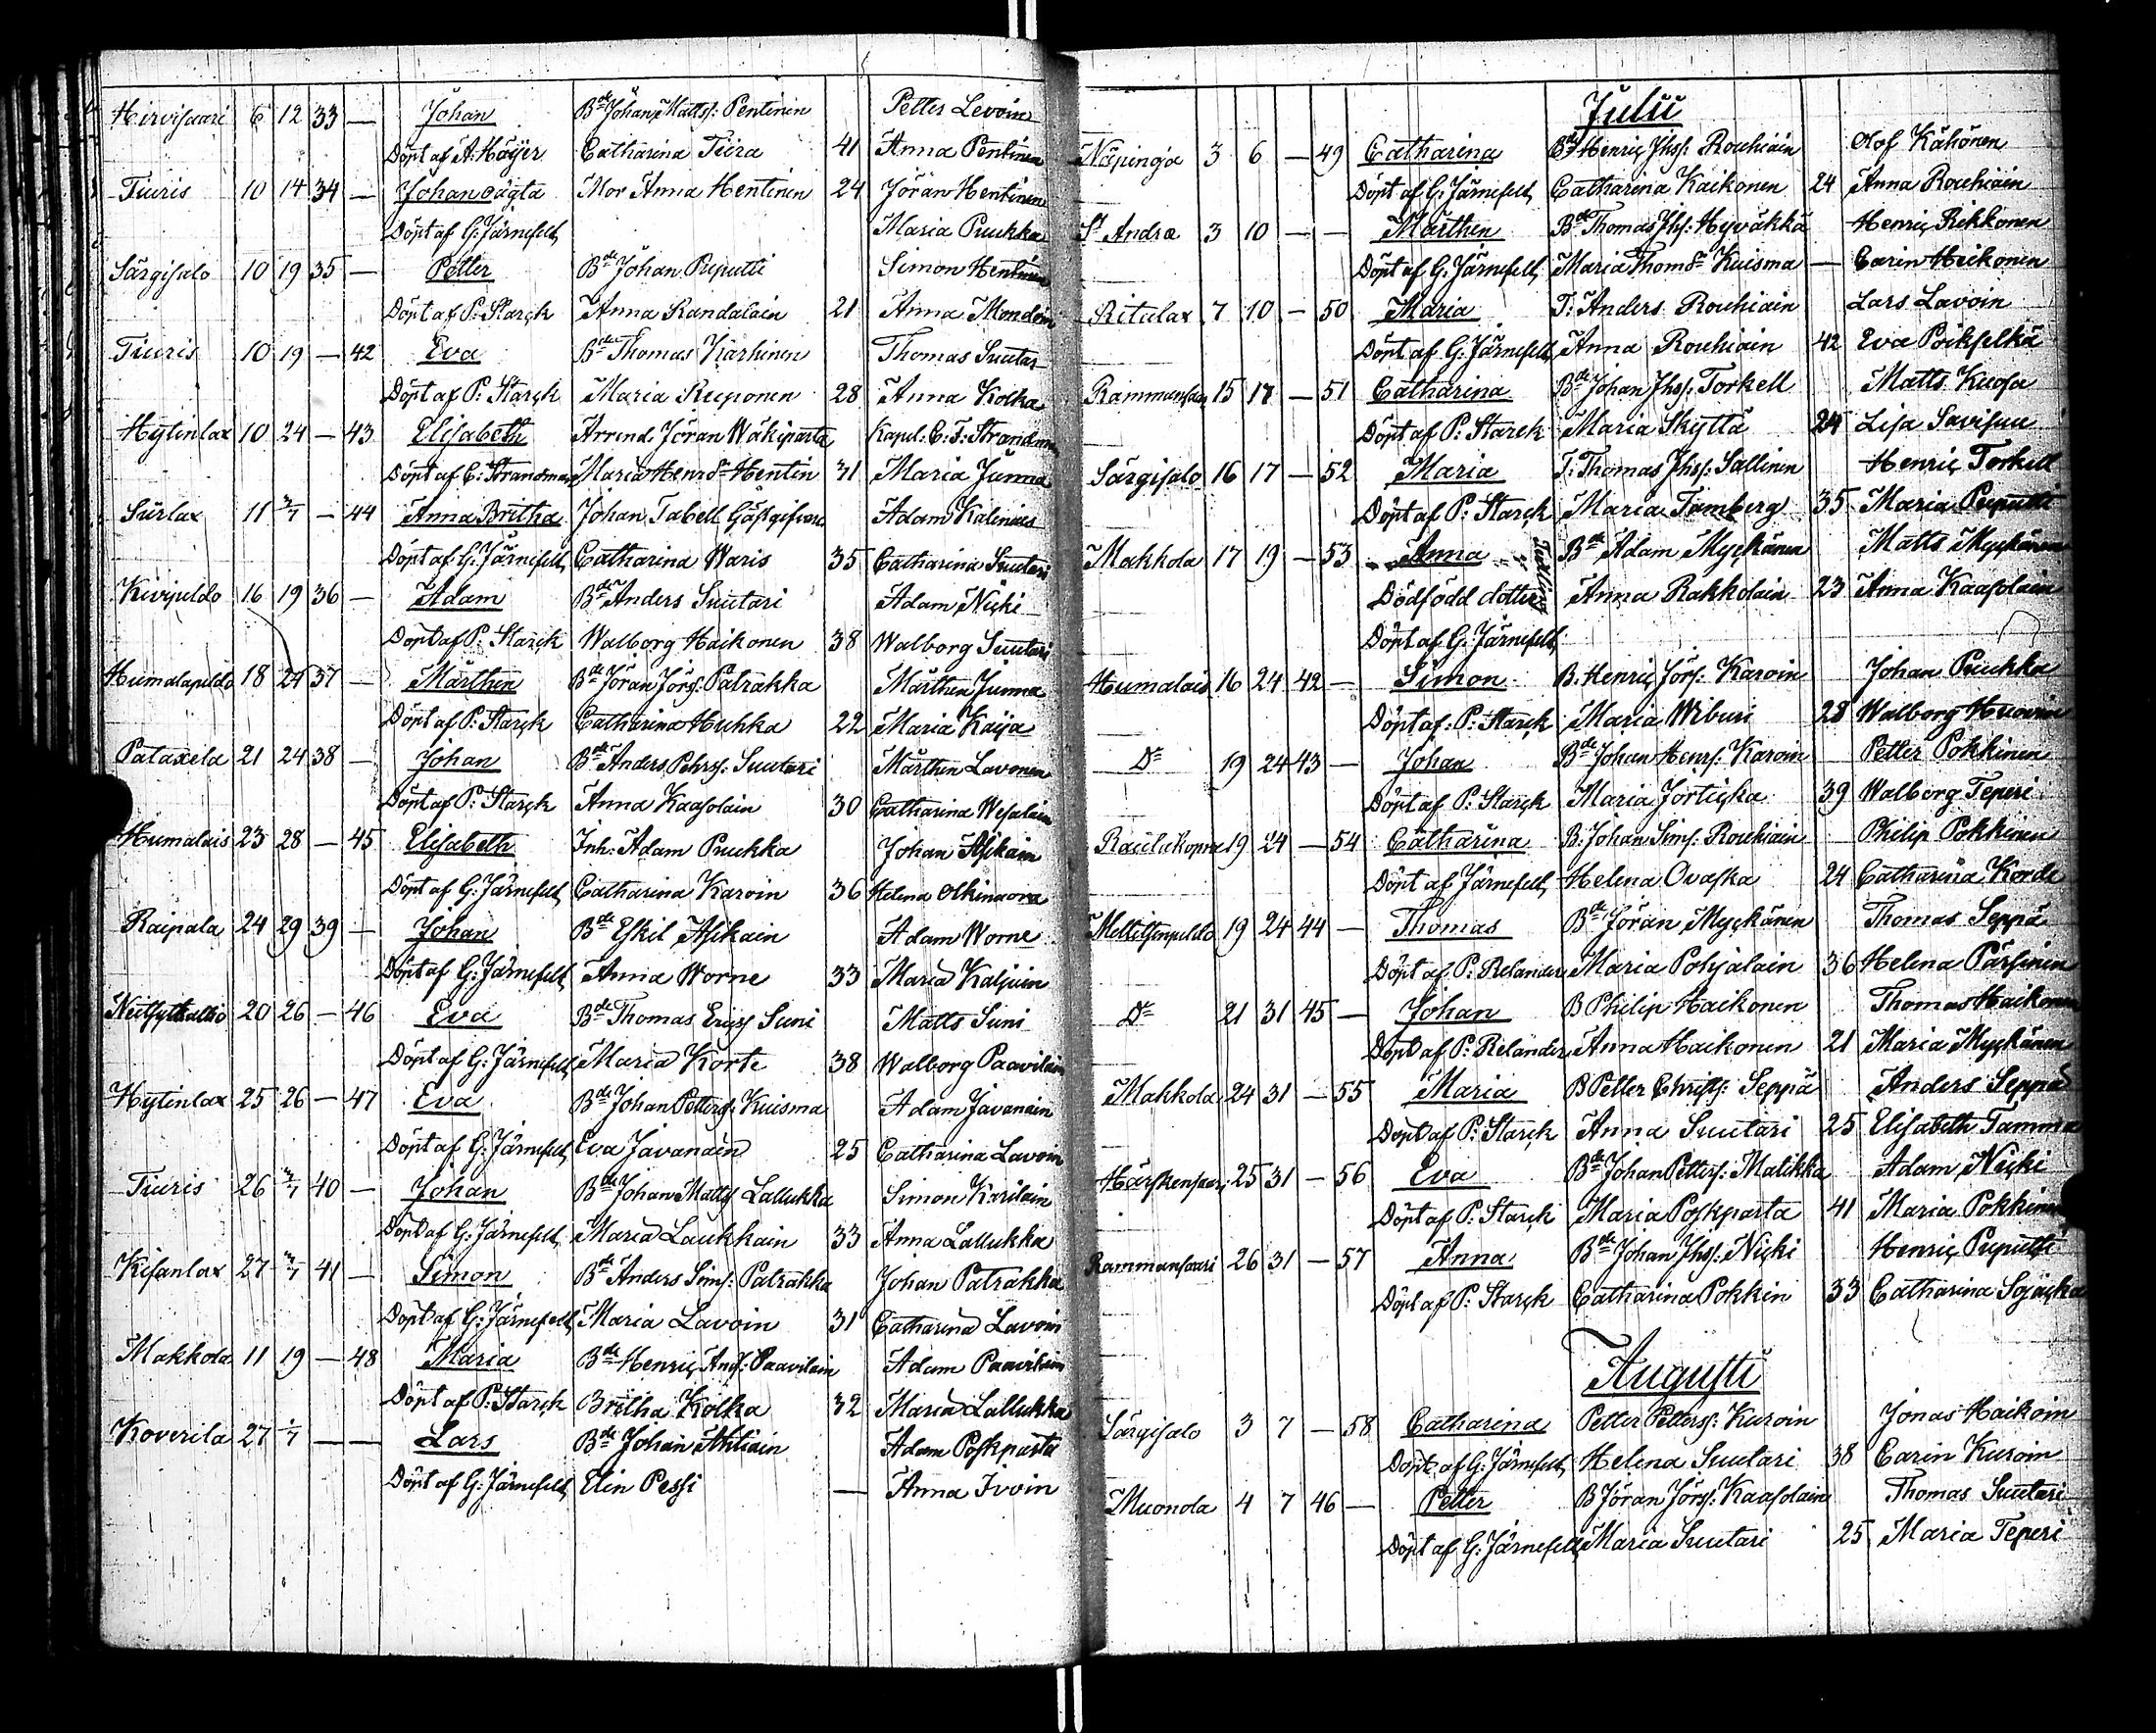 Hirvisaari 6 12 33 — Johan Bde Johan Matts: Pentinen Petter Levoin
Döpt af A: Höijer Catharina Tiira 41 Anna Pentinen
Tiuris 10 14 34 — Johan oägta Mor Anna Hentinen 24 Jöran Hentinen
Döpt af G: Järnefelt, Maria Pruukka
Särgisalo 10 19 35 — Petter Bde Johan Puputti Simon Hentinen
Döpt af P: Starck Anna Randalain 21 Anna
Tiuris 10 19 — 42 Eva Bde Thomas Karhinen Thomas Suutar
Döpt af P: Starck Maria Reponen 28 Anna Kolka
Hytinlax 10 24 — 43 Elisabeth Arrend. Jöran Wäkiparta Kapel: C: F: Strandman
Döpt af C: Strandman Maria Henrsdr Hentin 31 Maria Junna
Surlax 11 2/7 — 44 Anna Britha Johan Tabell Gäsgifvare Adam Kalinais
Döpt af G: Järnefelt, Catharina Waris 35 Catharina Suutari
Kivipeldo 16 19 36 — Adam Bde Anders Suutari Adam Nicki
Döpt af P: Starck Walborg Haikonen 38 Walborg Suutari
Humalapeldo 18 24 37 — Mårthen Bde Jöran Jörs: Patrakka Mårthen Junna
Döpt af P: Starck Catharina Huhka 22 Maria Kaija
Pataxela 21 24 38 — Johan Bde Anders Pehrs: Suutari Mårthen Lavonen
Döpt af P: Starck Anna Kaasolain 30 Catharina Wesalain
Humalais 23 28 — 45 Elisabeth Inh: Adam Pruukka Johan Asikain
Döpt af G: Järnefelt, Catharina Karvin 36 Helena Olkinuora
Raipala 24 29 39 — Johan Bde Eskil Asikain Adam Worne
Döpt af G: Järnefelt, Anna Worne 33 Maria Kaljuin
20 26 — 46 Eva Bde Thomas Erics Suni Matts Suni
Döpt af G: Järnefelt, Maria Korte 38 Walborg Paavilain
Hytinlax 25 26 — 47 Eva Bde Johan Petters: Kuisma Adam Javanain
Döpt af G: Järnefelt, Eva Javanain 25 Catharina Lavoin
Tiuris 26 2/7 40 — Johan Bde Johan Matts Lallukka Simon Karilain
Döpt af G: Järnefelt, Maria Laukkain 33 Anna Lallukka
Kisanlax 27 2/7 41 — Simon Bde Anders Sims: Patrakka Johan Patrakka
Döpt af G: Järnefelt, Maria Lavoin 31 Catharina Lavoin
Makkola 11 19 — 48 Maria Bde Henric And: Paavilain Adam Paavilain
Döpt af P: Starck Britha Kolka 32 Maria Lallukka
Koverila 27 1/7 — — Lars Bde Johan Ahtiain Adam Poskparta
Döpt af G: Järnefelt, Elin Pessi — Anna Ivoin
Julii
Näpinoja 3 6 — 49 Catharina Bde Henric Jhs: Rouhiain Olof Kähönen
Döpt af G: Järnefelt, Catharina Kaikonen 24 Anna Rouhiain
St Andræ 3 10 — — Mårthen Bde Thomas Jhs: Hyväkkä Henric Rikkonen
Döpt af G: Järnefelt, Maria Thomsdr Kuisma — Carin Haikonen
Ritalax 7 10 — 50 Maria T: Anders Rouhiain Lars Lavoin
Döpt af G: Järnefelt, Anna Rouhiain 42 Eva Poikselkä
15 17 — 51 Catharina Bde Johan Jhs: Torkell Matts Kuosa
Döpt af P: Starck Maria Skyttä 24 Lisa Savisuu
Särgisalo 16 17 — 52 Maria T: Thomas Jhs: Sallinen Henric Torkell
Döpt af P: Starck Maria Tamberg 35 Maria Puputti
Makkola 17 19 — 53 Anna Bde Adam Myckänen Matts Myckänen
Dödfödd dotter Anna Rakkolain 23 Anna Kaasolain
Döpt af G: Järnefelt,
Humalais 16 24 42 — Simon B. Henric Jörs: Karvin Johan Pruukka
Döpt af: P: Starck Maria Wiburi 28 Walborg Huovin
Do 19 24 43 — Johan Bde Johan Henrs: Karvin Petter Pokkinen
Döpt af P: Starck Maria Jorticka 39 Walborg Teperi
19 24 — 54 Catharina B. Johan Sims: Rouhiain Philip Pokkinen
Döpt af Järnefelt, Helena Ovaska 24 Catharina Korde
19 24 44 — Thomas Bde Jöran Myckänen Thomas Seppä
Döpt af P: Relander Maria Pohjalain 36 Helena Pärsinin
Do 21 31 45 — Johan B Philip Haikonen Thomas Haikonen
Döpt af P: Relander Anna Haikonen 21 Maria Myckänen
Makkola 24 31 — 55 Maria B Petter Christs: Seppä Anders Seppä
Döpt af P: Starck Anna Suutari 25 Elisabeth Tamma
25 31 — 56 Eva Bde Johan Petters: Malikka Adam Nicki
Döpt af P: Starck Maria Poskparta 41 Maria Pokkinen
Rammansaari 26 31 — 57 Anna Bde Johan Jhs: Nicki Henric Puputti
Döpt af P: Starck Catharina Pokkin 33 Catharina Sojacka
Augusti
Särgisalo 3 7 — 58 Catharina Petter Petters: Kuroin Jonas Haikoin
Döpt af G: Järnefelt, Helena Suutari 38 Carin Kuroin
Muonola 4 7 46 — Petter B Jöran Jörs: Kaasolain Thomas Suutari
Döpt af G: Järnefelt, Maria Suutari 25 Maria Teperi